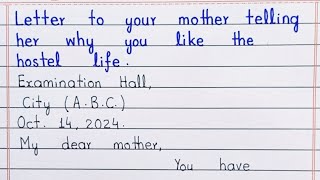 Letter to your mother telling
her why you like the
hostel life.
Examination Hall,
City (A.B.C.)
Oct. 14, 2024.
My dear mother,
You have